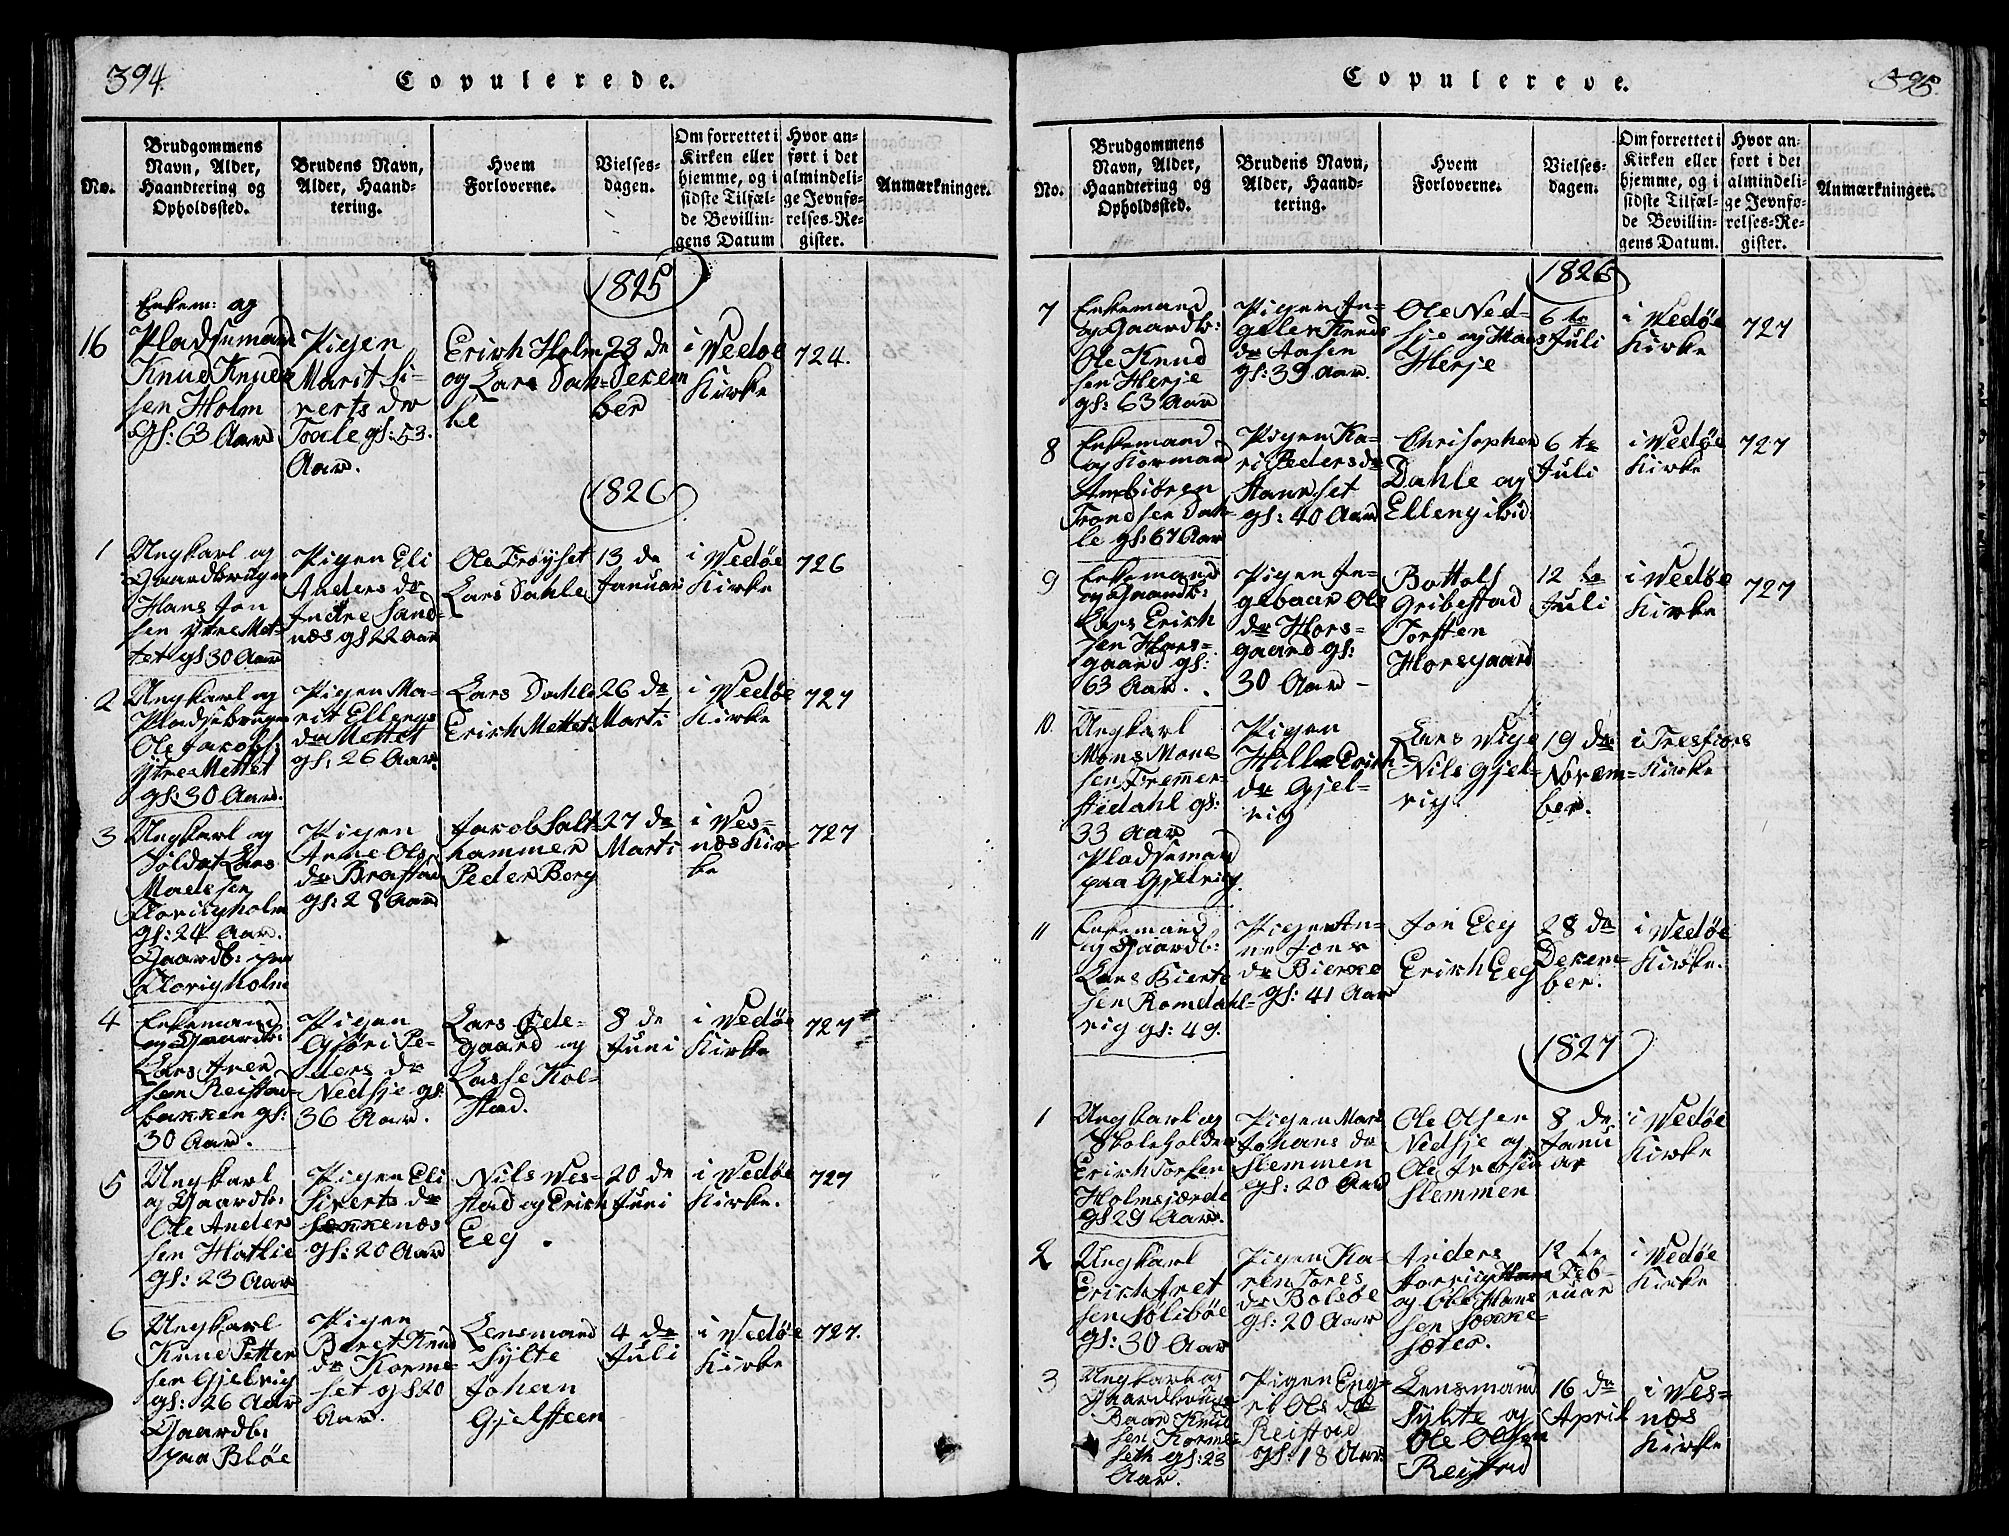 394.
Copulerede.
No.
Brudgommens
Navn, Alder,
Haandtering og
Opholdssted.
Brudens Navn,
Alder, Haand-
tering.
Hvem
Forloverne.
Vielses-
dagen.
Om forrettet i
Kirken eller
hjemme, og i
sidste Tilfæl-
de Bevillin-
gens Datum
Hvor an-
ført i det
almindeli-
ge Jevnfø-
relses-Re-
gister.
Anmærkninger.
1825
16
Enkem: og
Pladsemand
Knud Knud
sen Holm
gl: 63 Aar
Pigen
Marit Si-
verts dr
gl: 53.
Aar.
Erich Holm
og Lars Dah-
le
23 de
Decem
ber
i Vedøe
Kirke
724.
1826
1
Ungkarl og
Gaardbruger
Hans Jon
sen Ytre Met-
tet gl 30 Aar
Pigen Eli
Anders dr
Indre Sand-
næs gl 22 aar
Ole Frøyset
Lars Dahle
13 de
Januar
i Vedøe
Kirke
726
2
Ungkarl og
Pladsebruger
Ole Jacobs:
Ytre Mettet
gl: 30 Aar.
Pigen Ma-
rit Ellings
dr Mettet
gl: 26 Aar.
Lars Dahle
Erich Mettet
26 de
Marti
i Vedøe
Kirke
727
3
Ungkarl og
Soldat Lars
Madsen
gl: 24 Aar.
Gaardb: paa
Pigen
Anne Ols
dr Brastad
gl: 28 Aar
Jacob Salt-
hammer
Peder Borg
27 de
Marti
i Ves-
næs Kir-
ke
727
4
Enkemand
og Gaardb:
Lars Iver
sen Reistad-
bakken gl:
30 Aar.
Pigen
Gjøri Pe-
ders dr
Nedsje gl:
36 Aar.
Lars Øde-
gaard og
Lasse Kol-
stad.
8 de
Juni
i Vedøe
Kirke
727
5
Ungkarl
og Gaardb:
Ole Anders
sen
gl: 23 Aar
Pigen Eli
Siverts dr
Sækkenæs
gl: 20 Aar
Nils Ves-
tad og Erich
Eeg.
20 de
Juni
i Vedøe
Kirke.
727
6
Ungkarl
Knud Petter
sen Gjelvig
gl: 26 Aar
Gaardb:
paa Bløe
Pigen
Beret Knud
dr Korme-
set gl 20
Aar.
Lensmand
Sylte
Johan
Gjelsteen
4 de
Juli
i Vedøe
Kirke
727.
395.
Copulerede.
No.
Brudgommens
Navn, Alder,
Haandtering og
Opholdssted.
Brudens Navn,
Alder, Haand-
tering.
Hvem
Forloverne.
Vielses-
dagen.
Om forrettet i
Kirken eller
hjemme, og i
sidste Tilfæl-
de Bevillin-
gens Datum.
Hvor an-
ført i det
almindeli-
ge Jevnfø-
relses-Re-
gister.
Anmærkninger.
1826
7
Enkemand
og Gaardb:
Ole Knud
sen Herje
gl: 63 Aar
Pigen In-
geler Knuds
dr Aasen
gl: 39 Aar.
Ole Ned-
sje og Hans
Herje
6 te
Juli
i Vedøe
Kirke
727
8
Enkemand
og Kormand
Ambiören
Trondsen Dah-
le gl: 67 Aar
Pigen Ka-
ri Peders dr
Staurset
gl: 40 Aar
Chrisopher
Dahle og
6 te
Juli
i Vedøe
Kirke
727
9
Enkemand
og Gaardb:
Lars Erich
sen Hors-
gaard gl:
63 Aar.
Pigen In-
gebaar Ols
dr Hors-
gaard gl:
30 Aar -
Bottolf
Gribestad
Torsten
Horsgaard
12 te
Juli
i Vedøe
Kirke
727
10.
Ungkarl
Mons Mons
sen Fremer-
stedahl gl:
33 Aar
Pladsemand
paa Gjelvig.
Pigen
Hille Erich
dr Gjel-
vig
Lars Vige
Nils Gjel-
vig.
19 de
Novem-
ber.
i Tresfiors
Kirke
11
Enkemand
og Gaardb:
Lars Bierte
sen Romdahl-
vig gl: 49.
Pigen An-
ne Jons
dr Bierke
gl: 41 Aar
Jon Eeg
Erich Eeg
28 de
Decem-
ber.
i Vedøe
Kirke.
1827
1
Ungkarl og
Skoleholder
Erich Torsten
Holmsjærde
gl 29 Aar.
Pigen Mari
Johans dr
Slemmen
gl: 20 Aar
Ole Olsen
Nedsje og
Ole Iversen
Slemmen
8 de
Janu
ar
i Vedøe
Kirke
2
Ungkarl
Erich Aret
sen Sølibøe
gl: 30 Aar
Pigen Ka-
ren Tores
dr Boløe
gl: 20 Aar
Anders
og Ole Hans
sen Sække-
sæter.
12 te
Feb-
ruar
i Vedøe
Kirke
3
Ungkarl og
Gaardbruger
Baar Knud
sen Korme-
seth gl: 23
Aar.
Pigen Eng-
ri Ols dr
Reistad
gl: 18 Aar
Lensmand
Sylte og
Ole Olsen
Reistad
16 de
April
i Ves-
næs
Kirke